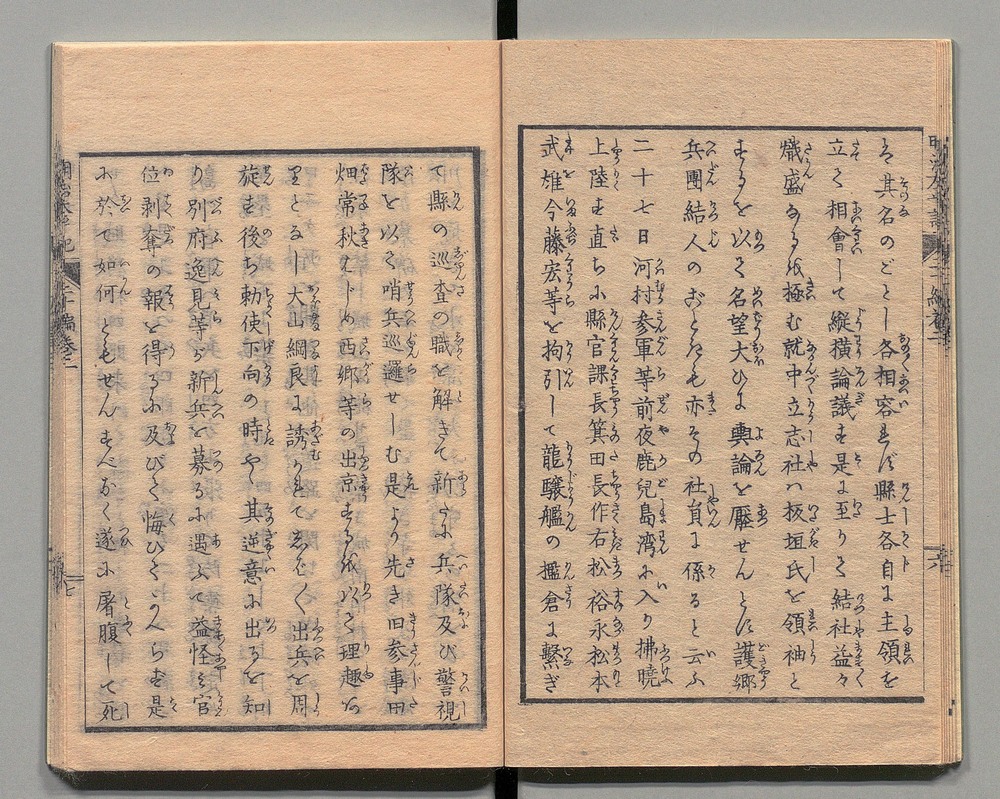 る其名のごとし各相容れず縣士各自に主領を
立て相會して縦横論議す是に至りて結社益々
熾盛なるを極む就中立志社ハ板垣氏を領袖と
するを以て名望大ひに輿論を壓せんとに護郷
兵團結人のおとも亦その社員に係ると云ふ
二十七日河村参軍等前夜鹿兒島湾に入り拂曉
上陸す直ちに縣官課長簑田長作右松裕永松本
武雄今藤宏等を拘引して龍驤艦の檻倉に繋ぎ
て縣の巡査の職を解きて新に兵隊及び警視
隊を以て哨兵巡邏せしむ是より先き旧参事田
畑常秋はじめ西郷等の出京するを以て理趣な
りとなし大山綱良に誘かれて出兵を周
旋せ後ち勅使下向の時や其逆意に出るを知
り別府逸見等が新兵を募るに遇ふて益怪み官
位剥奪の報を得るに及びて悔ひて是
に於て如何ともせんすべなく遂に屠腹して死